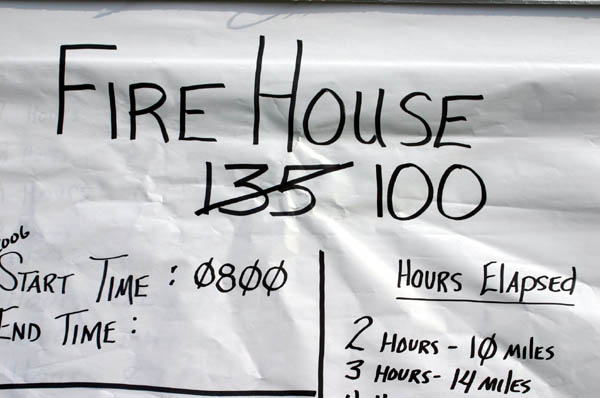 FIRE HOUSE
135 100
2006
START TIME : 0800
END TIME :
HOURS ELAPSED
2 HOURS - 10 MILES
3 HOURS - 14 MILES